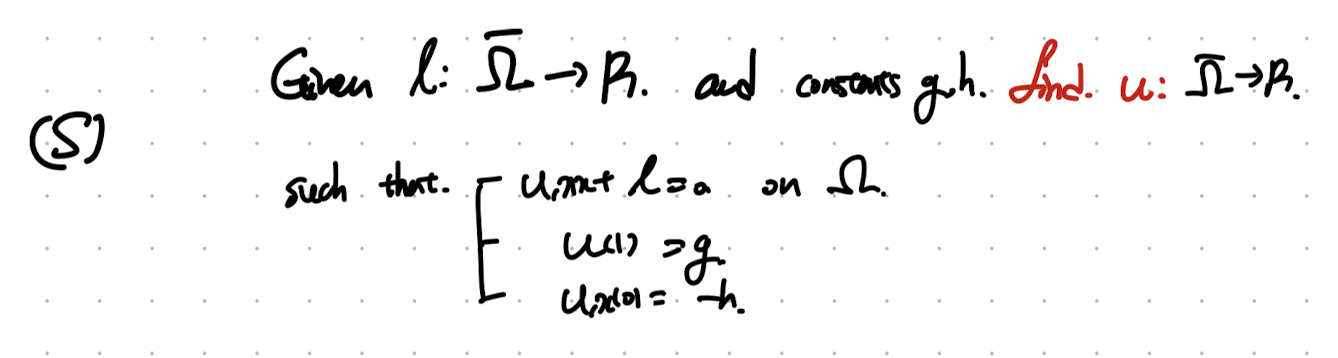 Given l: Ω̄ → R. and constants g,h. find. u: Ω̄→R.
(S)
such that. u,xx + l = 0 on Ω.
u(1) = g.
u,x(0) = -h.